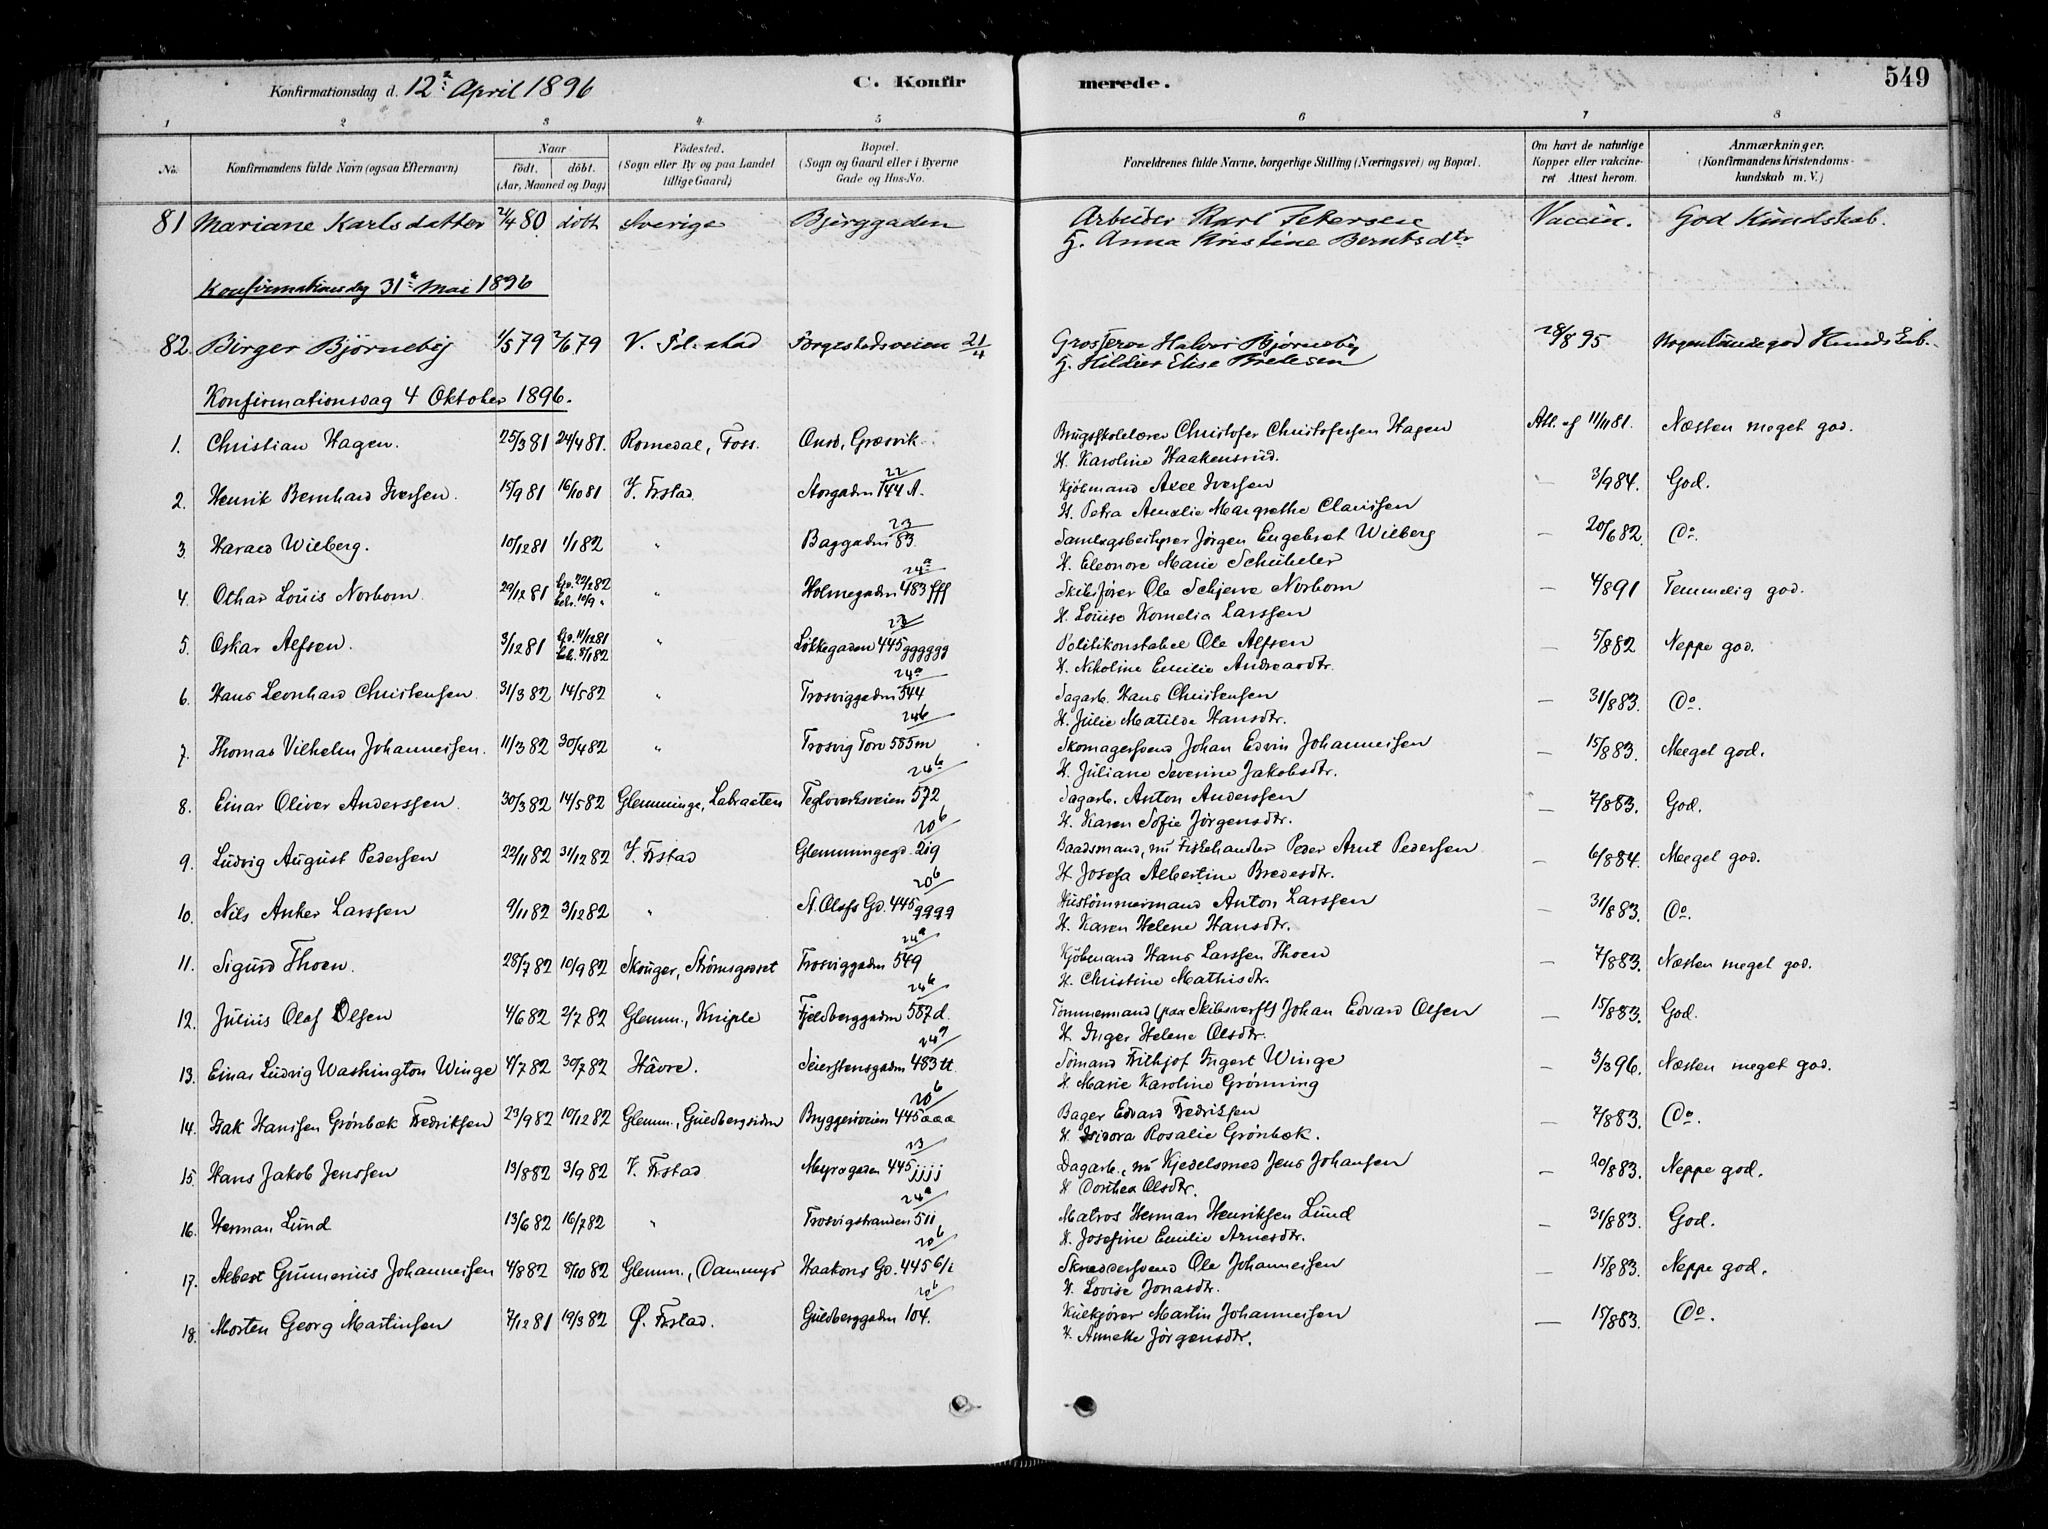 Konfirmationsdag d. 12te April 1896 C. Konfir merede. 549
1 2 3 4 5 6 7 8
No. Konfirmandens fulde Navn (ogsaa Efternavn) Naar født. døbt. (Aar, Maaned og Dag) Fødested. (Sogn eller By og paa Landet tillige Gaard) Bopæl. (Sogn og Gaard eller i Byerne Gade og Hus-No. Forældrenes fulde Navne, borgerlige Stilling (Næringsvei) og Bopæl. Om havt de naturlige Kopper eller vakcineret Attest herom. Anmærkninger. (Konfirmandens Kristendomskundskab m. V.)
81 Mariane Karlsdatter 2/4 80 døbt Sverige Bjerggaden Arbeider Karl Petersen Vaccin. God Kundskab.
H. Anna Kristine Berntsdtr
Konfirmationsdag 31te Mai 1896
82. Birger Bjørneby 1/5 79 2/6 79 V. Fr.stad Torgestadsveien 21/4 Grosserer Halvor Bjørneby 28/8 95 Nogenlunde god Kundskab.
H. Hilda Elise Bredesen
Konfirmationsdag 4 Oktober 1896.
1. Christian Hagen. 25/3 81 24/4 81. Romedal, Foss. Onsö, Græsvik. Brugsskolelærer Christofer Christofersen Hagen Att. af 11/11 81. Næsten meget god.
H. Karoline Haakensrud.
2. Henrik Bernhard Iversen. 15/9 81 16/10 81 V. Frstad. Storgaden 22/144 A. Kjøbmand Axel Iversen — 3/9 84. God.
H. Petra Amalie Margrethe Claussen
3. Harald Wilberg. 10/12 81 1/1 82 " Baggaden 23/83. Samlagsbestyrer Jørgen Engebret Wilberg — 20/6 82. Do.
H. Eleonore Marie Schübeler
4. Othar Louis Norbom. 29/12 81 " Holmegaden 24a/483 fff Skibsfører Ole Schjerve Norbom — 4/8 91 Temmelig god.
H. Louise Kornelia Larssen
5. Oskar Alfsen. 3/12 81 " Løkkegaden 23/445 gggggg Politikonstabel Ole Alfsen — 5/8 82 Neppe god.
H. Nikoline Emilie Andreasdtr.
6. Hans Leonhard Christensen 31/3 82 14/5 82 " Trosviggaden 24a/544 Dagarb. Hans Christensen — 31/8 83. Do.
H. Julie Matilde Hansdtr.
7. Thomas Vilhelm Johannessen. 11/3 82 30/4 82 " Trosvig Torv 24b/585m Skomagersvend Johan Edvin Johannessen — 15/8 83. Meget god.
H. Juliane Severine Jakobsdtr.
8. Einar Oliver Anderssen. 30/3 82 14/5 82 Glemminge, Labraaten Teglverksveien 24b/572 Dagarb. Anton Anderssen — 7/8 83. God.
H. Karen Sofie Jørgensdtr.
9. Ludvig August Pedersen 22/11 82 31/12 82 V. Frstad Glemminggd. 20b/219 Baadsmand, nu Fiskehandler Peder Arnt Pedersen — 6/8 84. Meget god.
H. Josefa Albertine Bredesdtr.
10. Nils Anker Larssen 9/11 82 3/12 82 " St. Olafs Gd. 20b/445 qqqq Hustømmermand Anton Larssen — 31/8 83. Do.
H. Karen Helene Hansdtr.
11. Sigurd Thoen. 28/7 82 10/9 82 Skouger, Strømsgodset Trosviggaden 24a/549 Kjøbmand Hans Larssen Thoen — 7/8 83. Næsten meget god.
H. Christine Mathisdtr.
12. Julius Olaf Olsen 4/6 82 2/7 82 Glemm., Kniple Fjeldberggaden 24b/587 d. Tømmermand (paa Skibsverft) Johan Edvard Olsen — 15/8 83. God.
H. Inger Helene Olsdtr.
13. Einar Ludvig Washington Winge 4/7 82 30/7 82 Hâvre. Seierstensgaden 24a/483 tt Sømand Frithjof Ingart Winge — 3/3 96. Næsten meget god.
H. Marie Karoline Grønning
14. Isak Hanssen Grønbæk Fredriksen 23/9 82 10/12 82 Glemm., Guldbergsiden Bryggeriveien 20b/445 aaa Bager Edvard Fredriksen — 7/8 83. Do.
H. Isidora Rosalie Grønbæk.
15. Hans Jakob Jenssen 13/8 82 3/9 82 V. Frstad Myragaden 23/445 jjjj Dagarb., nu Kjedelsmed Jens Johansen — 20/8 83. Neppe god.
H. Dorthea Olsdtr.
16. Herman Lund 13/6 82 16/7 82 " Trosvigstranden 24a/511 Matros Herman Henriksen Lund — 31/8 83. God.
H. Josefine Emilie Arnesdtr.
17. Albert Gunnerius Johannessen 4/8 82 8/10 82 Glemm., Dammyr Haakons Gd. 20b/445 6/i Skræddersvend Ole Johannessen — 15/8 83. Neppe god.
H. Lovise Jonasdtr.
18. Morten Georg Martinsen 7/12 81 19/3 82 Ø. Frstad. Guldberggaden 20b/104. Kulkjører Martin Johannessen — 15/8 83. Do.
H. Annette Jørgensdtr.